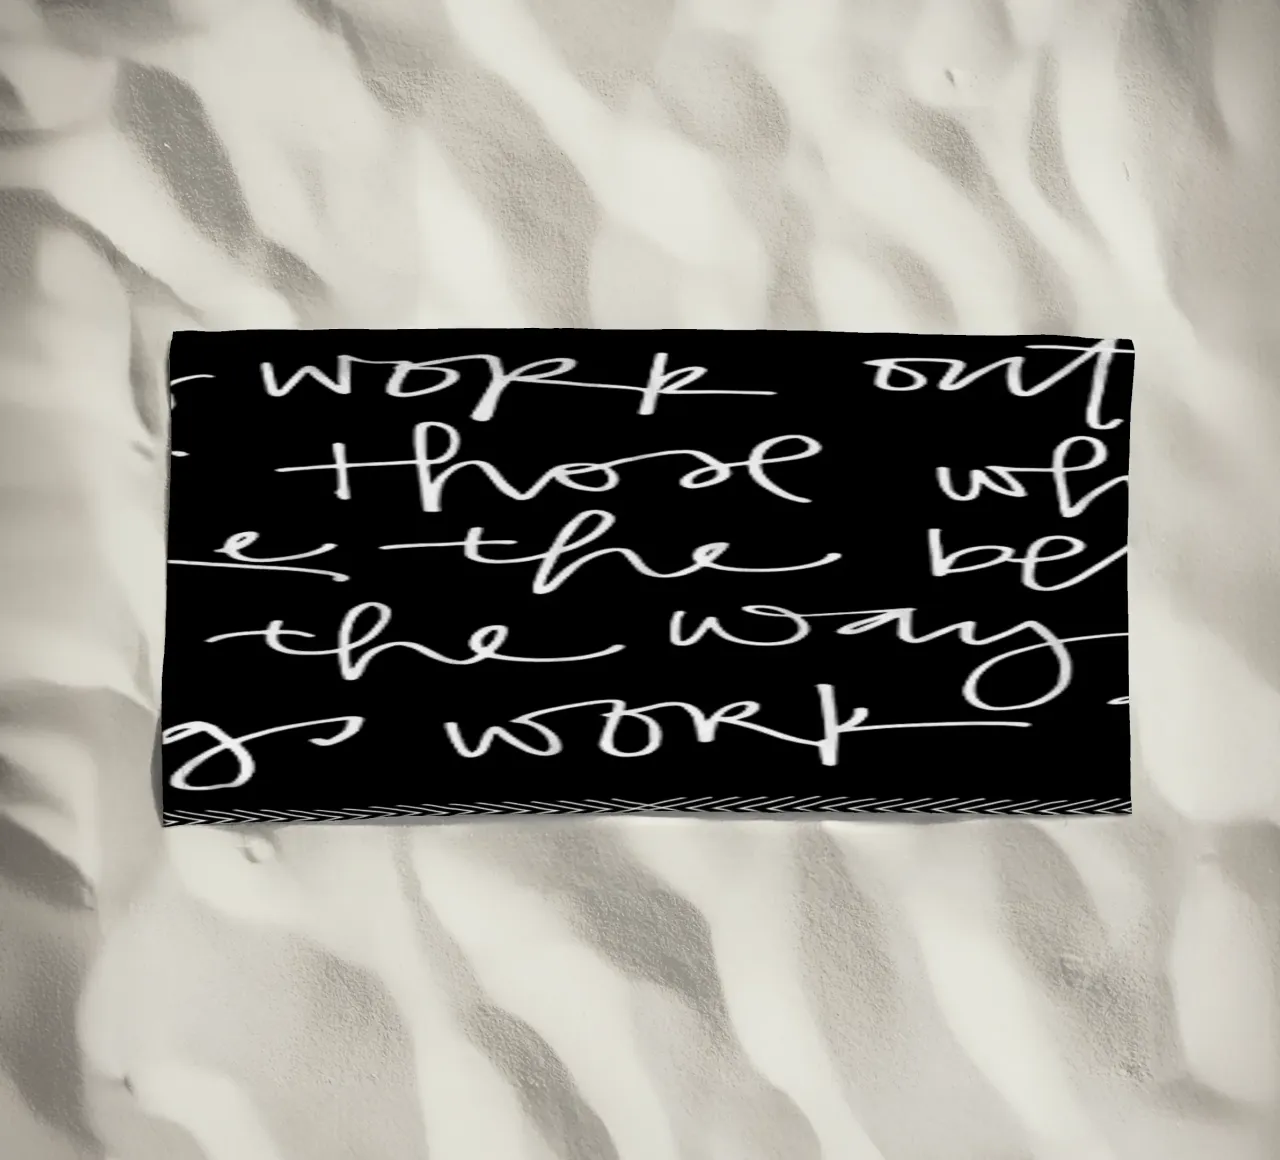 work out
those wh
e the be
the way
gs work